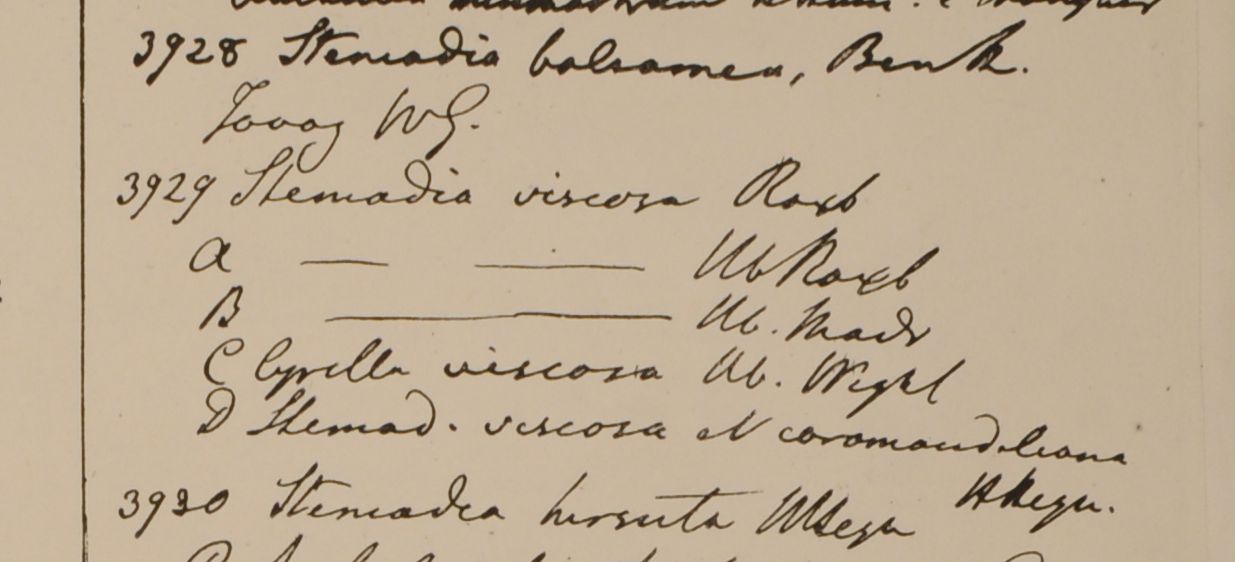 3928 Stemadia balsamea, Benth.
Tavoy WG.
3929 Stemadia viscosa Roxb
A — — Hb Roxb
B — Hb. Madr
C Cyrilla viscosa Hb. Wight
D Stemad. viscosa et coromandeliana
H Heyn.
3930 Stemadia hirsuta Heyn